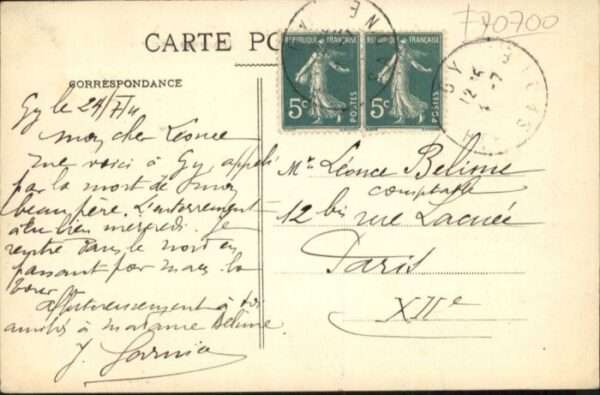 F70700
CARTE PO
CORRESPONDANCE
RÉPUBLIQUE FRANÇAISE
5c
POSTES
RÉPUBLIQUE FRANÇAISE
5c
POSTES
GY
12
Gy le
mon cher Léonce
me voici à Gy, appelé
par la mort de mon
beau père. L'enterrement
a eu lieu mercredi. je
rentre dans le nord en
passant par
affectueusement à toi
amitiés à madame Belime
J.
Mr Léonce Belime
comptable
12 bis rue Lacuée
Paris
XIIe